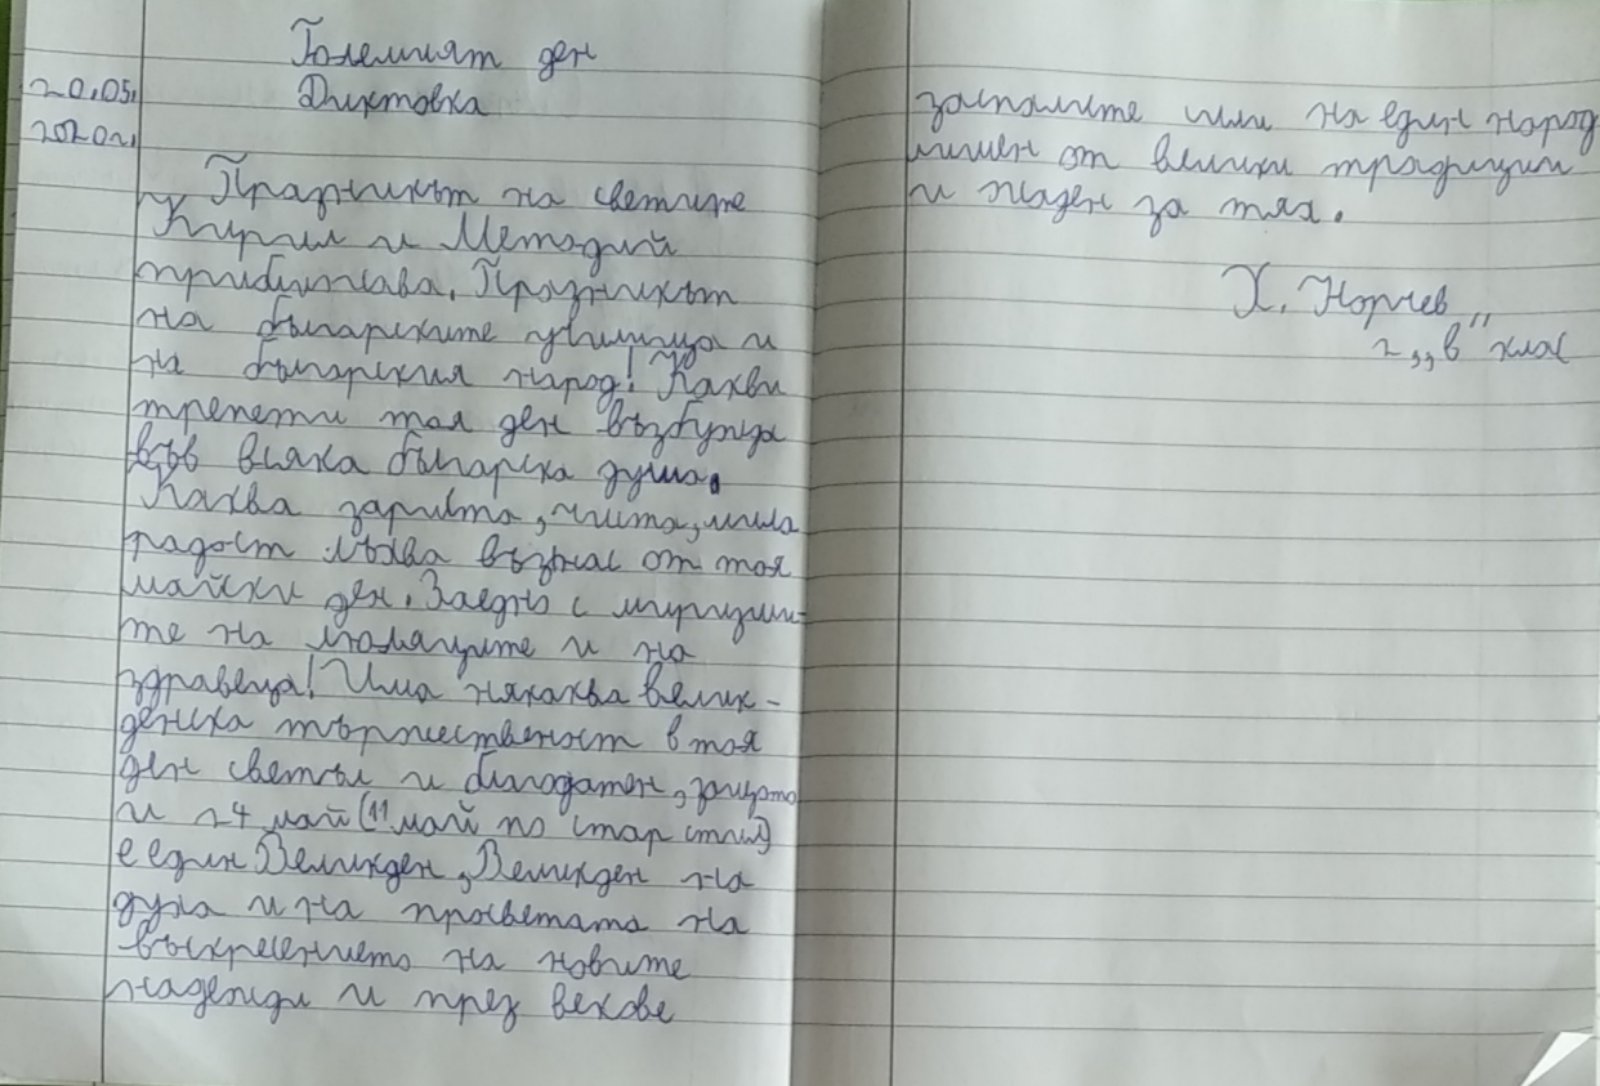 Големият ден
20.05.
Диктовка
2020г.
Празникът на светите
Кирил и Методий
приближава. Празникът
на българските училища и
на българския народ! Какви
трепети тоя ден възбужда
във всяка българска душа.
Каква зарита, чиста, мила
радост лъхва възнас от тоя
майски ден. Заедно с миризми-
те на люляците и на
здравеца! Има някаква велик-
денска тържественост в тоя
ден светъл и благодатен, защото
и 24 май (11 май по стар стил)
е един Великден, Великден на
духа и на просветата на
възкресението на новите
надежди и през векове
заспалите или на един народ
лишен от велики традиции
и жаден за тях.
Х. Норчев
2 „в" клас